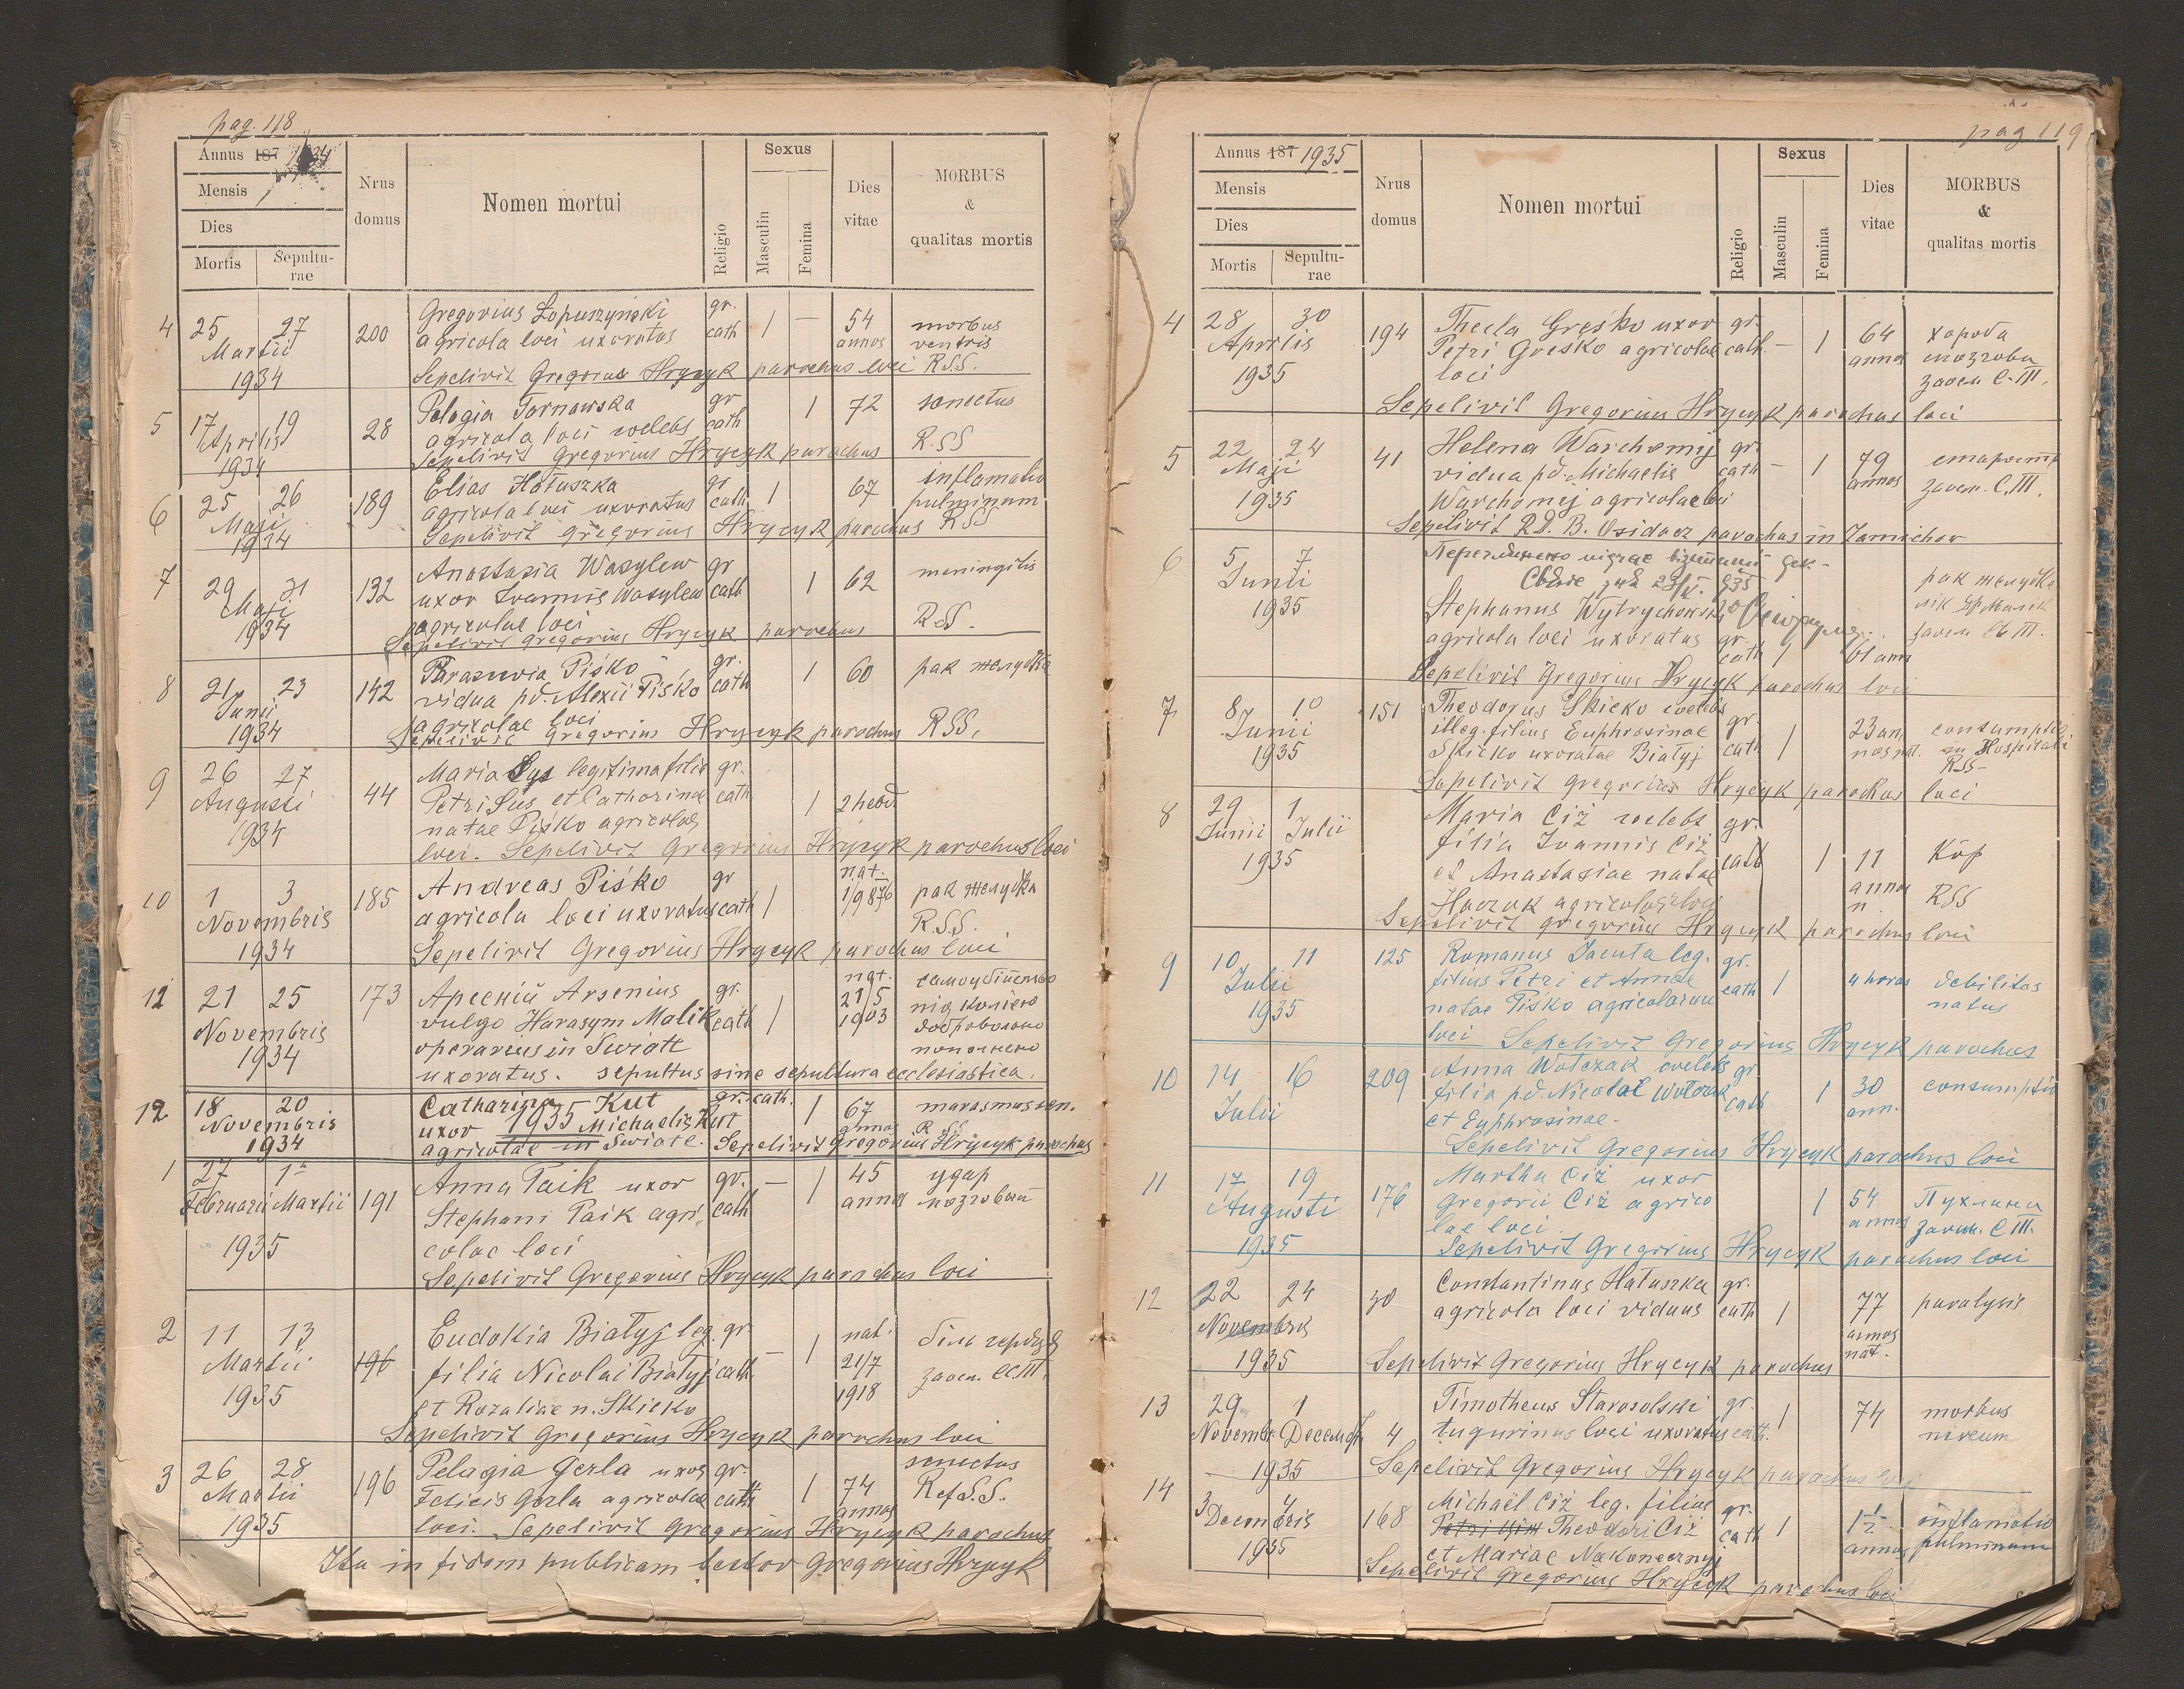 pag. 118
Annus 187 1934
Mensis
Dies
Mortis
Sepultu-
rae
Nrus
domus
Nomen mortui
Religio
Sexus
Masculin
Femina
Dies
vitae
MORBUS
&
qualitas mortis
4 25 27 200 Gregorius Łopuszyński gr. 1 — 54 morbus
Martii agricola loci uxoratus cath annos ventris
1934 Sepelivit Gregorius Hrycyk parochus loci RSS.
5 17 19 28 Pelagia Tarnawska gr 1 72 senectus
Aprilis agricola loci coelebs cath R.SS
1934 Sepelivit Gregorius Hrycyk parochus
6 25 26 189 Elias Hałuszka gr 1 67 inflamatio
Maji agricola loci uxoratus cath pulminum
1934 Sepelivit Gregorius Hrycyk parochus RSS
7 29 31 132 Anastasia Wasylew gr 1 62 meningitis
Maji uxor Ioannis Wasylew cath
1934 agricolae loci R.SS.
Sepelivit Gregorius Hrycyk parochus
8 21 23 142 Parascevia Piśko gr. 1 60 рак желудка
Junii vidua pd. Alexii Piśko cath
1934 agricolae loci
Sepelivit Gregorius Hrycyk parochus RSS.
9 26 27 44 Maria Sys legitima filia gr.
Augusti Petri Sus et Catharinae cath 1 2 hebd.
1934 natae Piśko agricolae
loci. Sepelivit Gregorius Hrycyk parochus loci
10 1 3 185 Andreas Piśko gr 1 nat. рак желудка
Novembris agricola loci uxoratus cath 1/9 876 R.S.S.
1934 Sepelivit Gregorius Hrycyk parochus loci
11 21 25 173 Арсеній Arsenius gr. 1 nat. самоубійство
Novembris vulgo Harasym Malik cath 21/5 під колією
1934 operarius in Swiate 1903 добровольно
uxoratus. sepultus sine sepultura ecclesiastica. пополнено
12 18 20 Catharina Kut gr. cath. 1 67 marasmus sen.
Novembris uxor Michaelis Kut annos R SS
1935
1934 agricolae in Swiate. Sepelivit Gregorius Hrycyk parochus
1 27 1 191 Anna Paik uxor gr. — 1 45 удар
Februarii Martii Stephani Paik agri- cath annos мозговий
1935 colae loci
Sepelivit Gregorius Hrycyk parochus loci
2 11 13 196 Eudokia Biatyj leg. gr — 1 nat. біль
Martii filia Nicolai Biatyj cath. 21/7 заосм. С.III.
1935 et Rozaliae n. Skicko 1918
Sepelivit Gregorius Hrycyk parochus loci
3 26 28 196 Pelagia Gerla uxor gr. 1 74 senectus
Martii Felicis Gerla agricolae cath annos Ref S.S.
1935 loci. Sepelivit Gregorius Hrycyk parochus
Ita in fidem publicam testor Gregorius Hrycyk
pag 119
Annus 187 1935
Mensis
Dies
Mortis
Sepultu-
rae
Nrus
domus
Nomen mortui
Religio
Sexus
Masculin
Femina
Dies
vitae
MORBUS
&
qualitas mortis
4 28 30 194 Thecla Greśko uxor gr. — 1 64 хороба
Aprilis Petri Greśko agricolae cath. annos мозгова
1935 loci заосм С. III.
Sepelivit Gregorius Hrycyk parochus loci
5 22 24 41 Helena Warchomij gr. — 1 79 старость
Maji vidua pd. Michaelis cath annos заосм. С.III.
1935 Warchomej agricolae loci
Sepelivit R.D. B. Osidacz parochus in
6 5 7
Junii рак желудка
1935 Stephanus Wytrychowski
agricola loci uxoratus gr. cath 1 61 ann заосм С III.
Sepelivit Gregorius Hrycyk parochus loci
7 8 10 151 Theodorus Skicko coelebs gr. 1 23 an- consumptio
Junii illeg. filius Euphrosinae cath nos nat. in Hospitali
1935 Skicko uxoratae Biatyj RSS
Sepelivit Gregorius Hrycyk parochus loci
8 29 1 Maria Ciż coelebs gr.
Junii Julii filia Ioannis Ciż cath 1 11 Кӧр
1935 et Anastasiae natae annos RSS
Haczak agricolae loci
Sepelivit Gregorius Hrycyk parochus loci
9 10 11 125 Romanus Jacuta leg. gr. 1 4 horas debilitas
Julii filius Petri et Annae cath natus
1935 natae Piśko agricolarum
loci Sepelivit Gregorius Hrycyk parochus
10 14 16 209 Anna Wołczak coelebs gr 1 30 consumptio
Julii filia pd. Nicolai Wołczak cath ann.
et Euphrosinae.
Sepelivit Gregorius Hrycyk parochus loci
11 17 19 176 Martha Ciż uxor 1 54 Пухлина
Augusti Gregorii Ciż agrico annos заосм. С III.
1935 lae loci.
Sepelivit Gregorius Hrycyk parochus loci
12 22 24 30 Constantinus Hałuszka gr. 1 77 paralysis
Novembris agricola loci viduus cath annos
1935 nat.
Sepelivit Gregorius Hrycyk parochus
13 29 1 4 Timotheus Starosolski gr. 1 74 morbus
Novemb. Decemb. tugurinus loci uxoratus cath.
1935 Sepelivit Gregorius Hrycyk parochus loci
14 3 4 168 Michaël Ciż leg. filius gr. 1 1½ inflamatio
Decembris Theodori Ciż cath annos pulminum
1935 et Mariae Nakonecznyj
Sepelivit Gregorius Hrycyk parochus loci